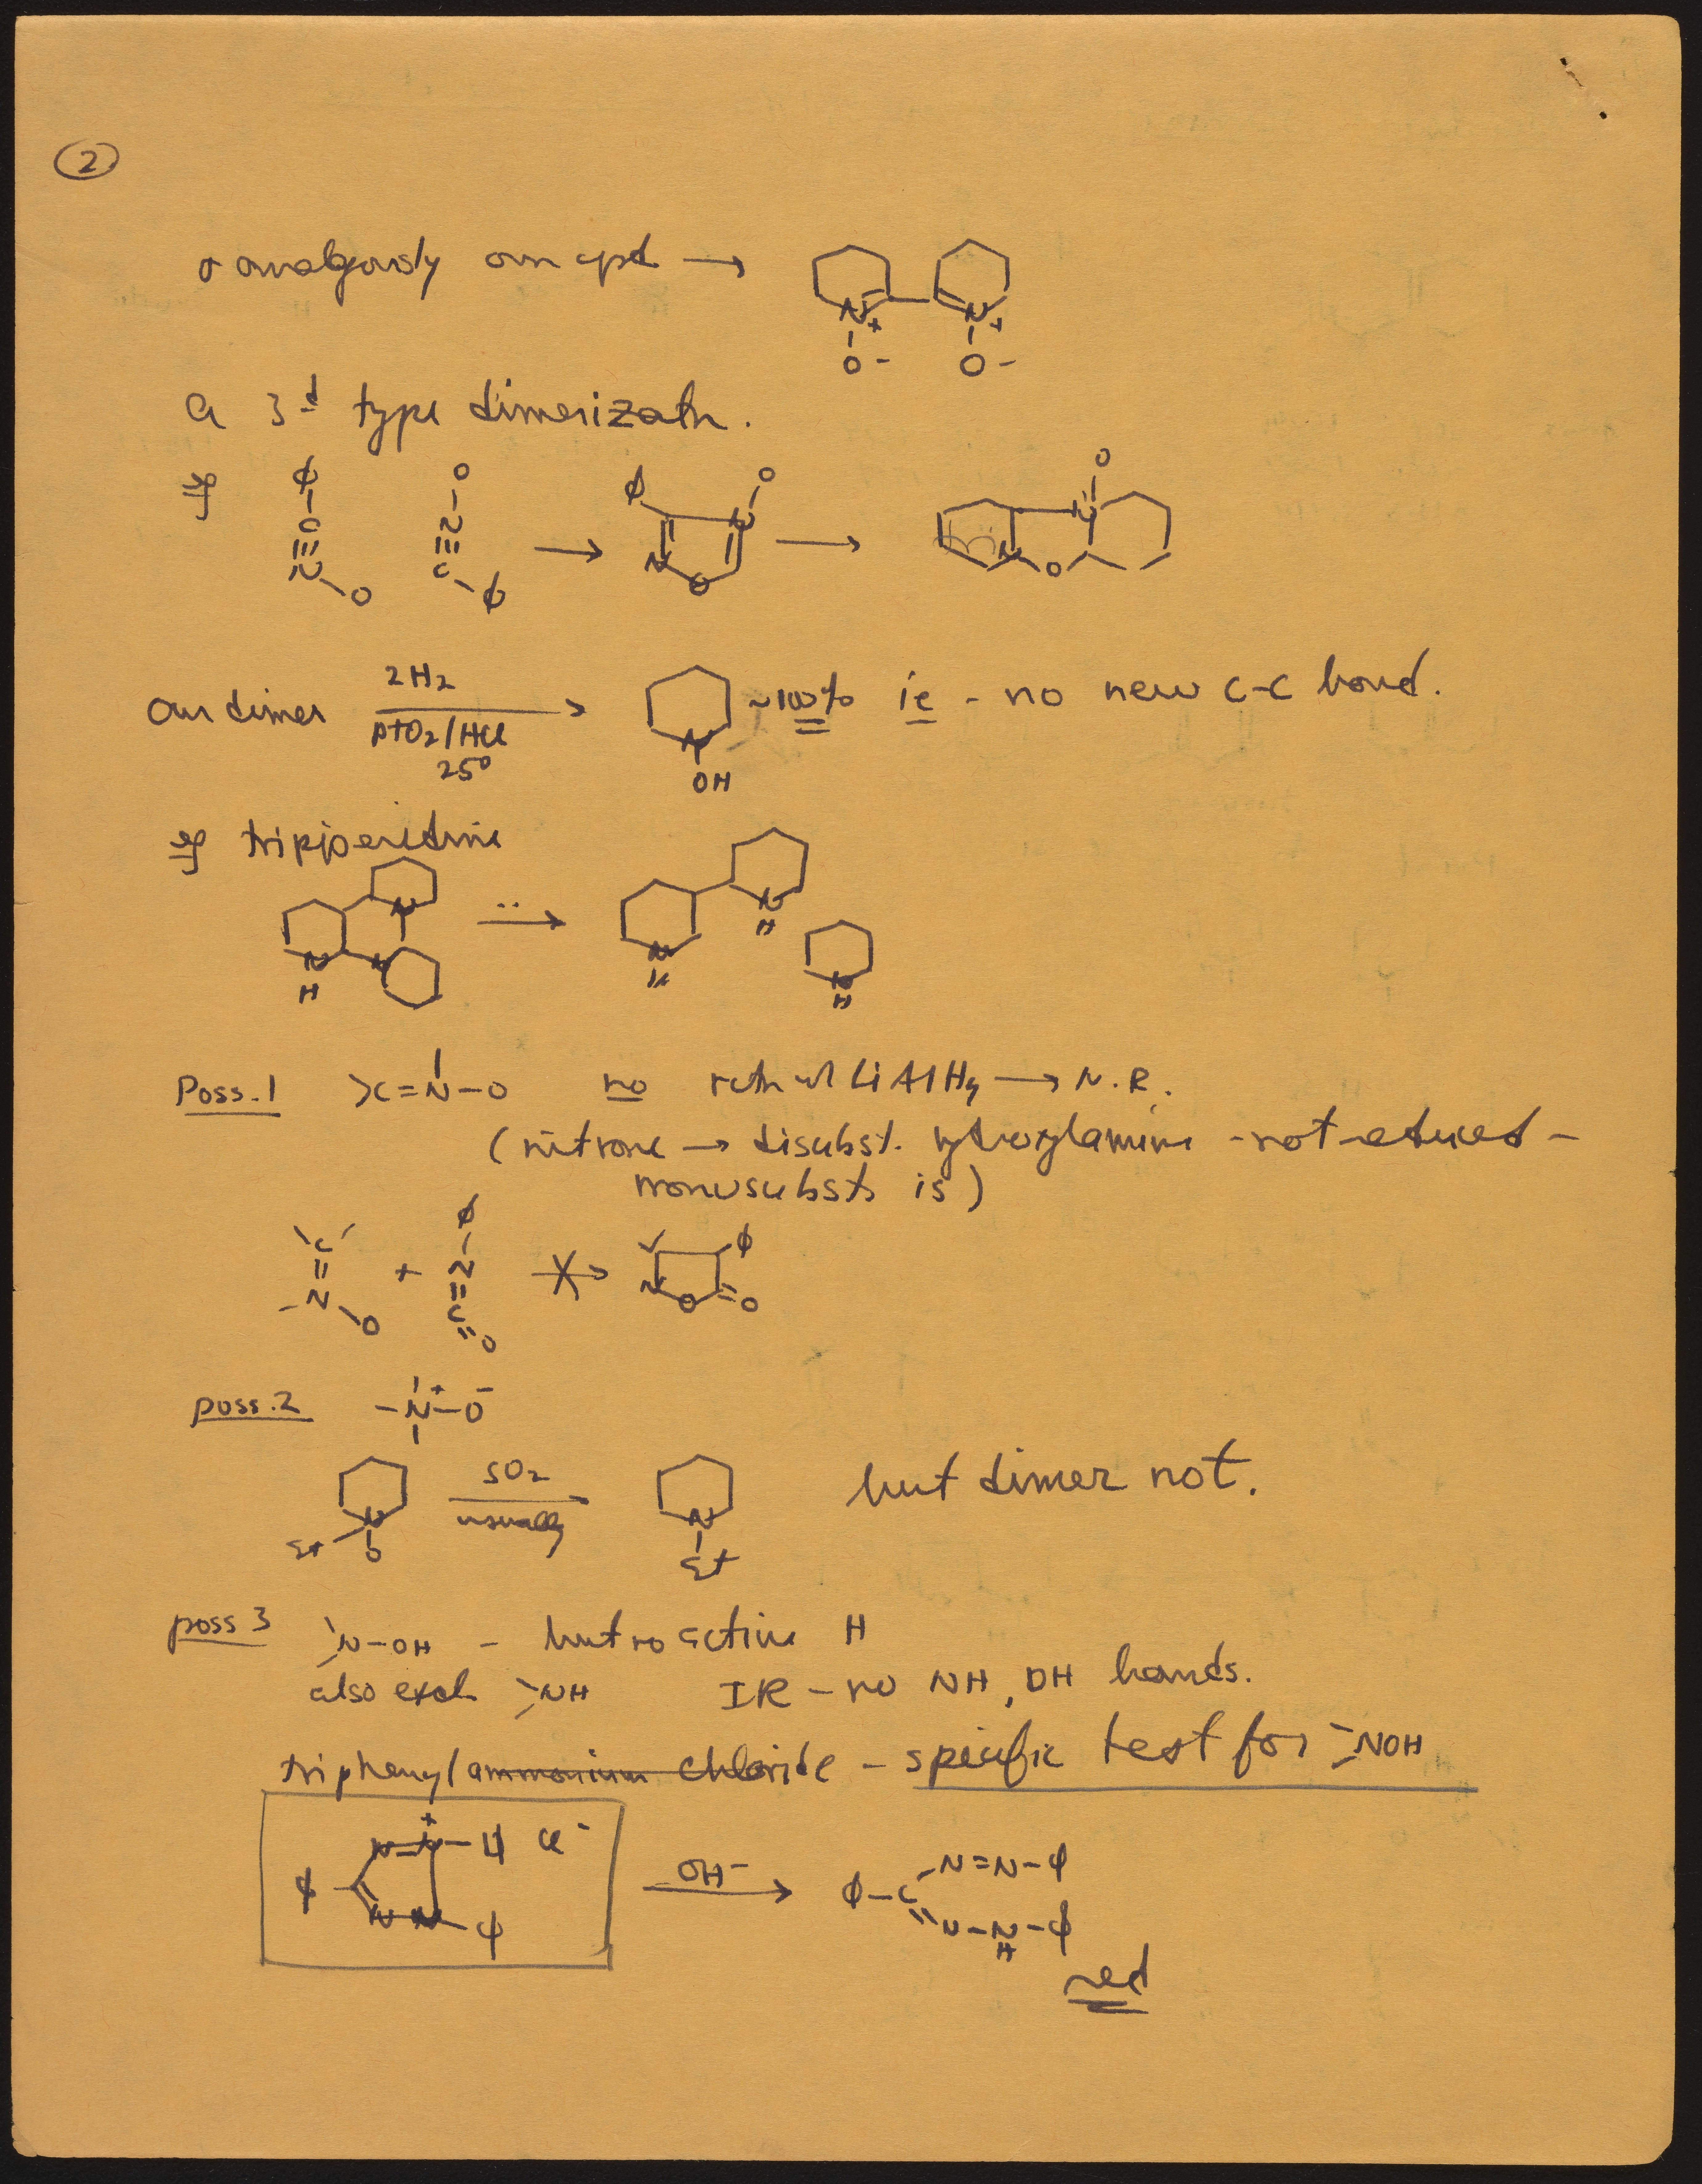 ②
& analogously our cpd →
N+ N+
O- O-
a 3d type dimerizatn.
eg φ-C≡N-O O-N≡C-φ → φ N O N O → O N N O
our dimer 2H2 / PtO2/HCl 25° → N OH ~100% ie - no new C-C bond.
eg tripiperidine
N N N H → N H N H N H
Poss. 1 >C=N-O no rctn w/ LiAlH4 → N.R.
(nitrone → disubst. hydroxylamine - not reduced -
monosubst is)
C=N-O + φ-N=C=O ↛ φ N O =O
poss. 2 -N+-O-
Et N O SO2 / usually → N Et but dimer not.
poss 3 >N-OH - but no active H
also excl. >NH IR - no NH, OH bands.
triphenyl ammonium chloride - specific test for >NOH
φ N=N+ N-N φ Cl- OH- → φ-C N=N-φ =N-NH-φ
red